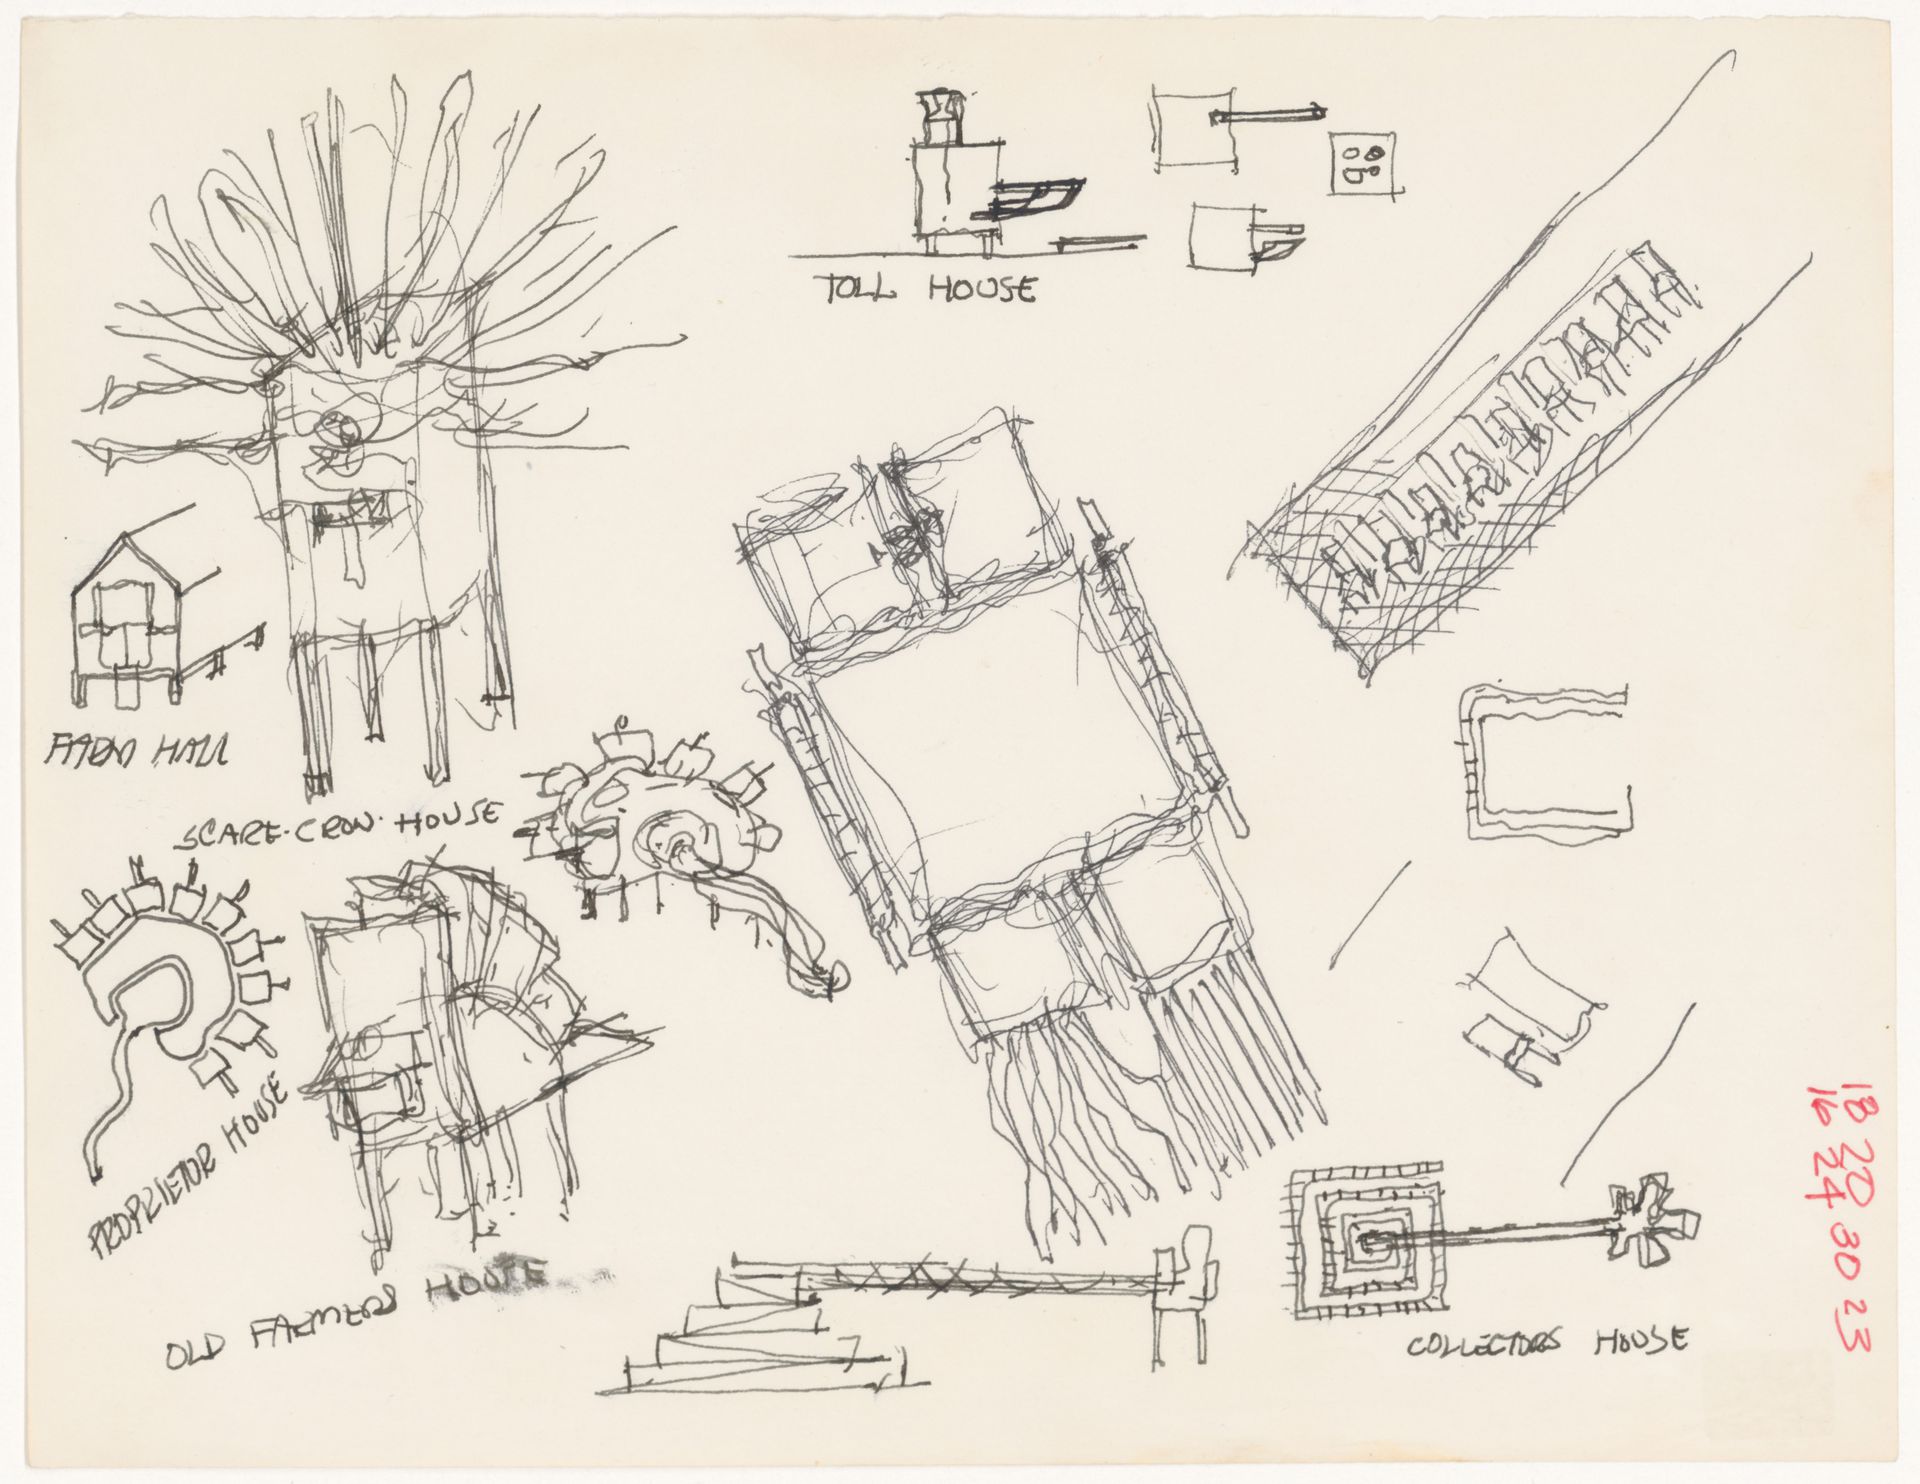 TOLL HOUSE
FARM HALL
SCARE·CROW·HOUSE
PROPRIETOR HOUSE
OLD FARMERS HOUSE
COLLECTORS HOUSE
18 20 30 23
16 24